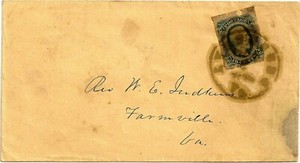 Rev W. E. Judkins
Farmville
Va.